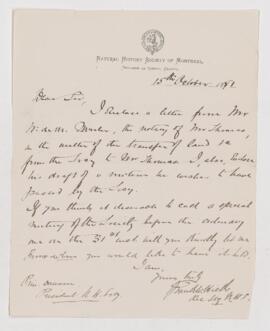 NATURAL HISTORY SOCIETY OF MONTREAL,
15th October 1881
Dear Sir,
I enclose a letter from Mr
the notary of Mr Thomas,
in the matter of the transfer of land
from the Socy to Mr Thomas. I also enclose
his draft of a motion he wishes to have
passed by the Socy.
If you think it desirable to call a special
meeting of the Society before the ordinary
one on the 31st inst will you kindly let me
know when you would like to have it held.
I am,
Yours truly
Rec. Secy N.H.S.
President N.H. Socy